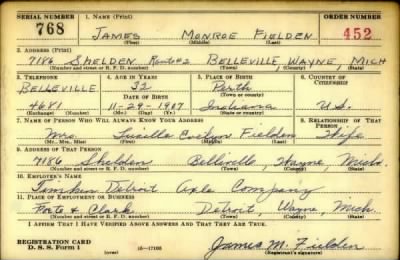 SERIAL NUMBER 1. NAME (Print) ORDER NUMBER
768 JAMES MONROE FIELDEN 452
(First) (Middle) (Last)
2. ADDRESS (Print)
7186 SHELDEN Route #2 BELLEVILLE, WAYNE, MICH
(Number and street or R. F. D. number) (Town) (County) (State)
3. TELEPHONE 4. AGE IN YEARS 5. PLACE OF BIRTH 6. COUNTRY OF CITIZENSHIP
BELLEVILLE 32 Perth
DATE OF BIRTH (Town or county)
4681 11-29-1907 Indiana U.S.
(Exchange) (Number) (Mo.) (Day) (Yr.) (State or country)
7. NAME OF PERSON WHO WILL ALWAYS KNOW YOUR ADDRESS 8. RELATIONSHIP OF THAT PERSON
Mrs. Lucille Evelyn Fielden Wife
(Mr., Mrs., Miss) (First) (Middle) (Last)
9. ADDRESS OF THAT PERSON
7186 Shelden Belleville, Wayne, Mich.
(Number and street or R. F. D. number) (Town) (County) (State)
10. EMPLOYER'S NAME
Timken Detroit Axle Company
11. PLACE OF EMPLOYMENT OR BUSINESS
& Clark Detroit, Wayne, Mich.
(Number and street or R. F. D. number) (Town) (County) (State)
I AFFIRM THAT I HAVE VERIFIED ABOVE ANSWERS AND THAT THEY ARE TRUE.
REGISTRATION CARD
D. S. S. Form 1 (over) 16—17105 James M. Fielden
(Registrant's signature)